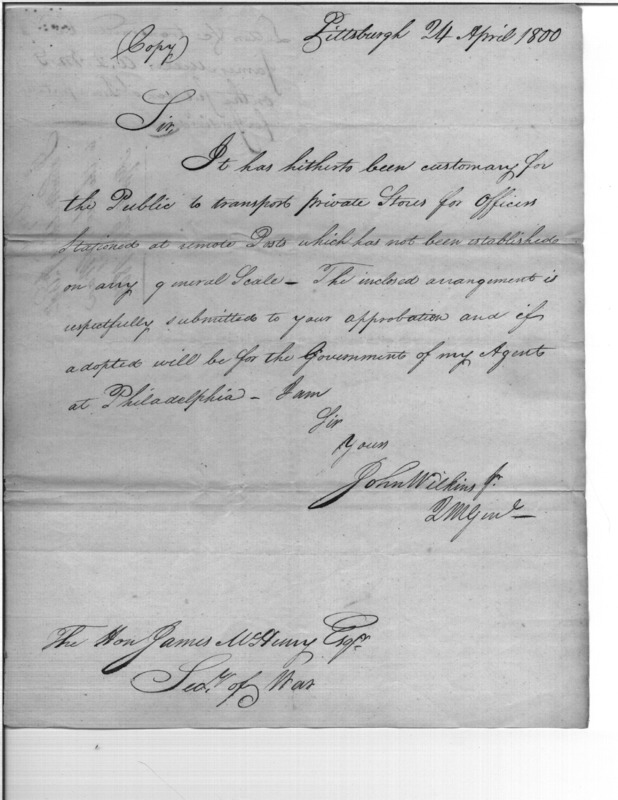 Pittsburgh 24 April 1800
(Copy)
Sir,
It has hitherto been customary for
the Public to transport private Stores for Officers
stationed at remote Posts which has not been established
on any general Scale – The inclosed arrangement is
respectfully submitted to your approbation and if
adopted will be for the Government of my Agents
at Philadelphia – I am
Sir
Yours
John Wilkins Jr.
QMGenl –
The Hon James McHenry Esqr.
Secy. of War